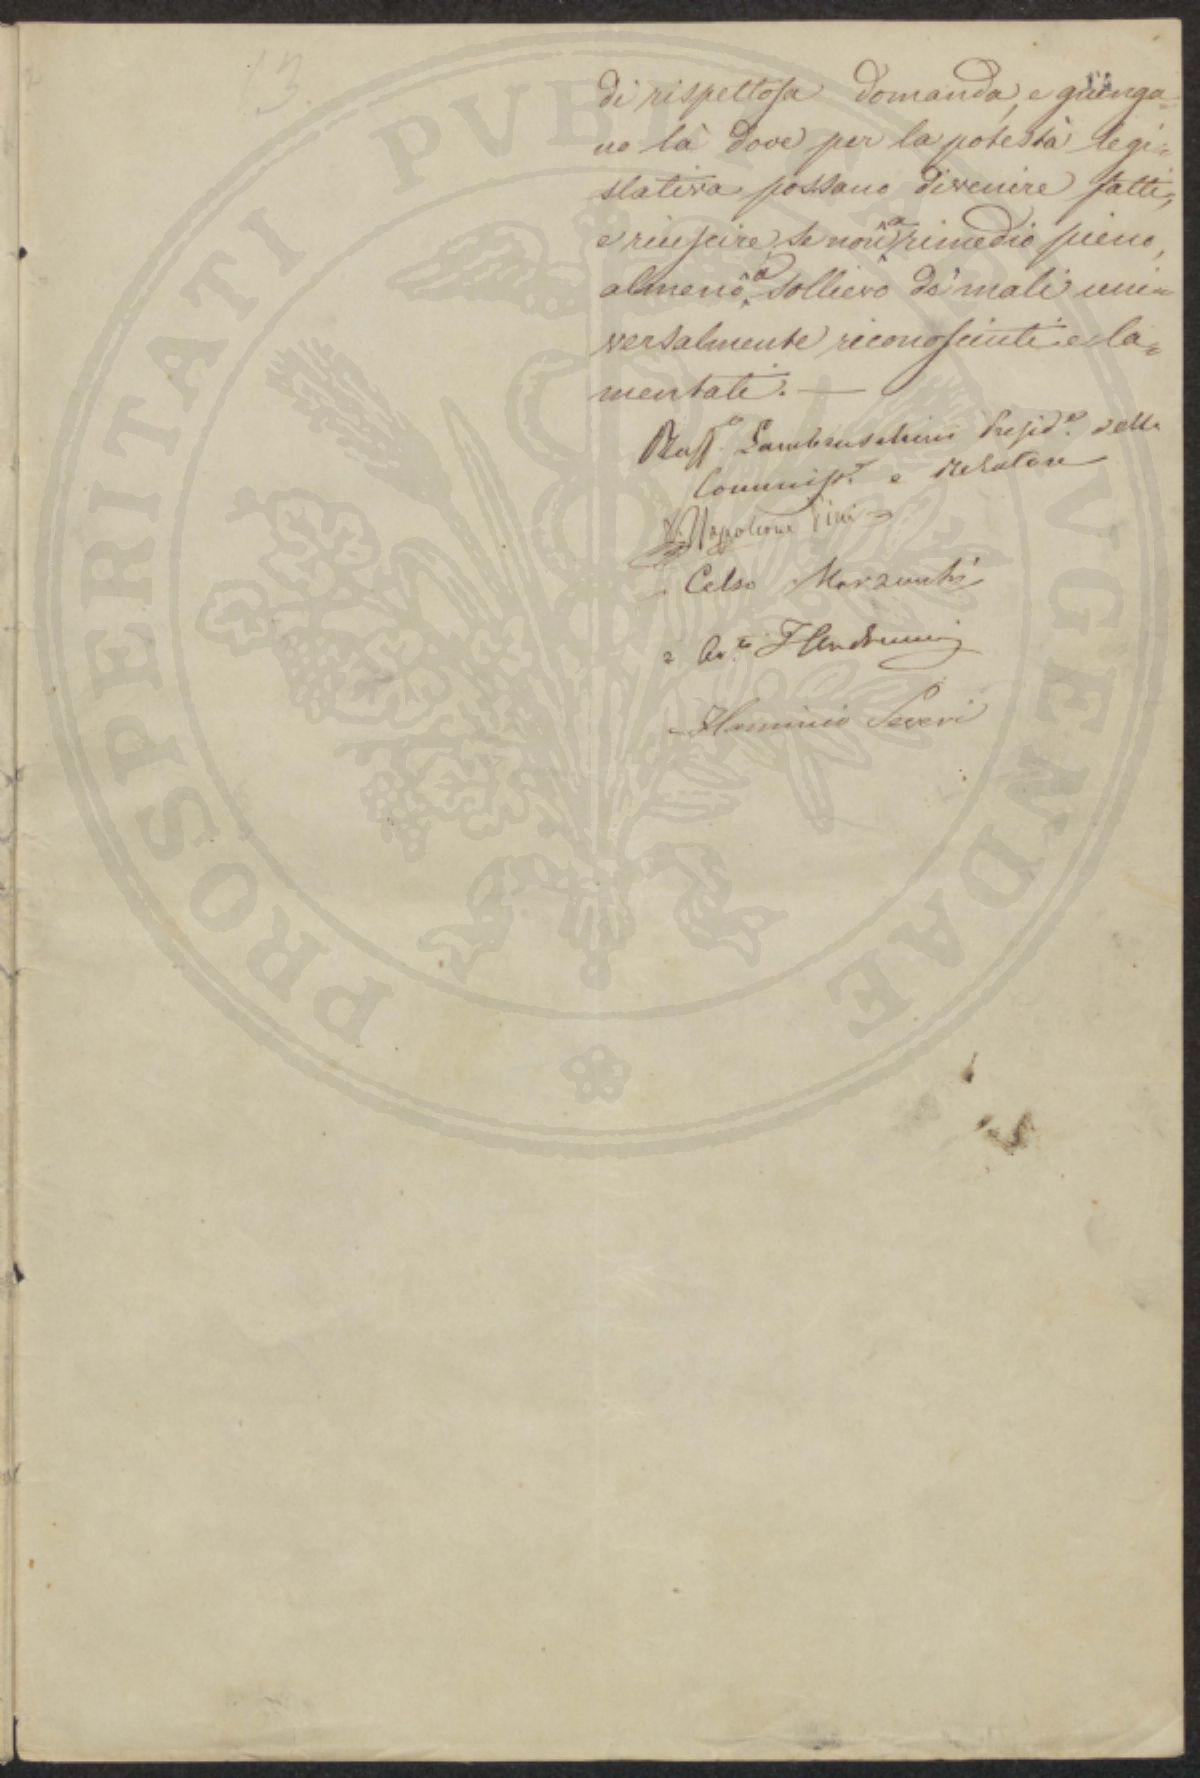 13
di rispettosa domanda, e giunga=
no là dove per la potestà legi=
slativa possano divenire fatti,
e riuscire, se non a rimedio pieno,
almeno a sollievo de' mali uni=
versalmente riconosciuti e la=
mentati. —
Raff.e Lambruschini Presid.e della
Commiss.e e Relatore
Napoleone Pini
Celso Marzucchi
Flaminio Severi
PROSPERITATI PVBLICAE AVGENDAE